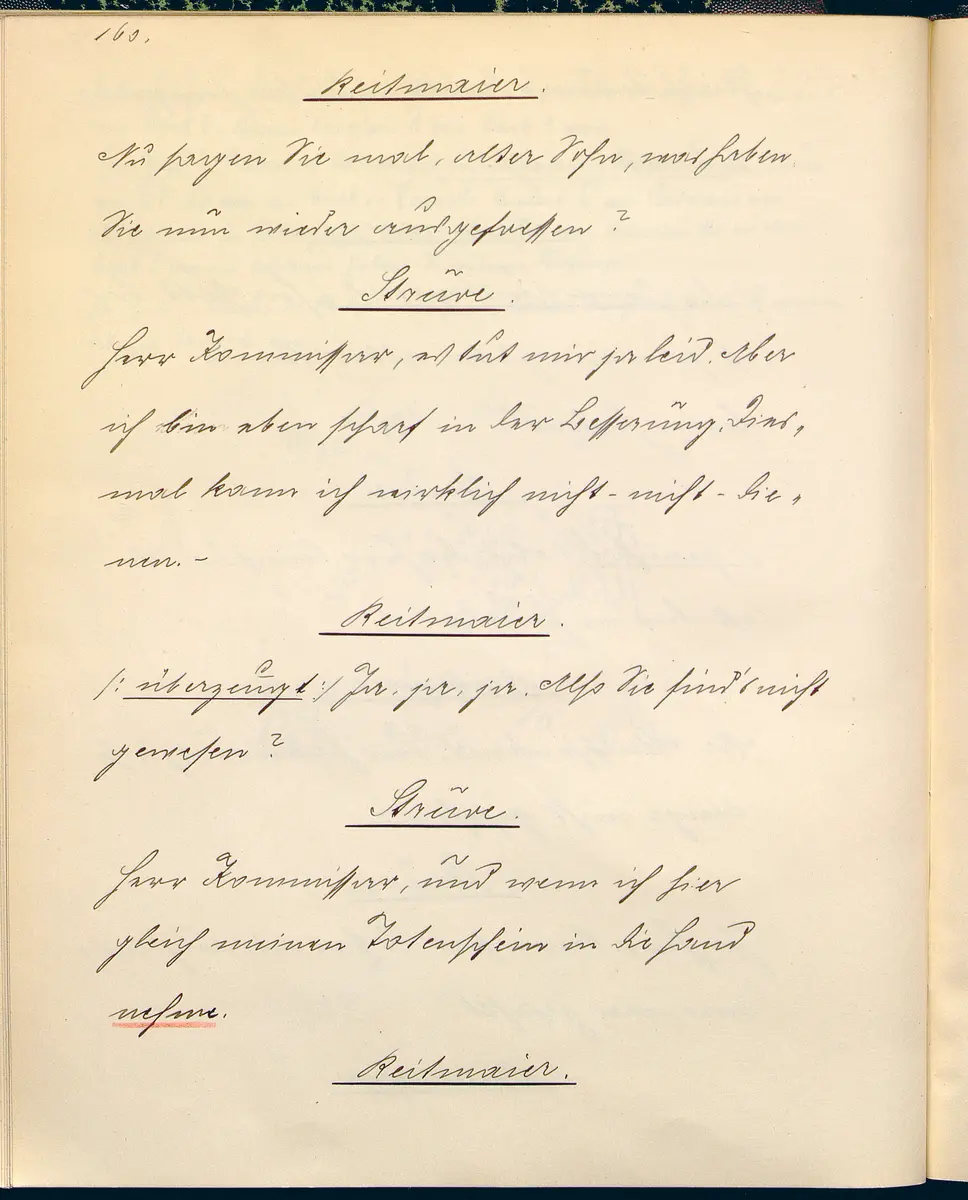 160.
Reitmaier.
Nu sagen Sie mal, alter Sohn, was haben
Sie nun wieder ausgefressen?
Strüve.
Herr Kommissar, es tut mir ja leid. Aber
ich bin eben scharf in der Besserung. Dies„
mal kann ich wirklich nicht - nicht - die„
nen. -
Reitmaier.
/: überzeugt :/ Ja, ja, ja. Also Sie sind's nicht
gewesen?
Strüve.
Herr Kommissar, und wenn ich hier
gleich meinen Totenschein in die Hand
nehme.
Reitmaier.